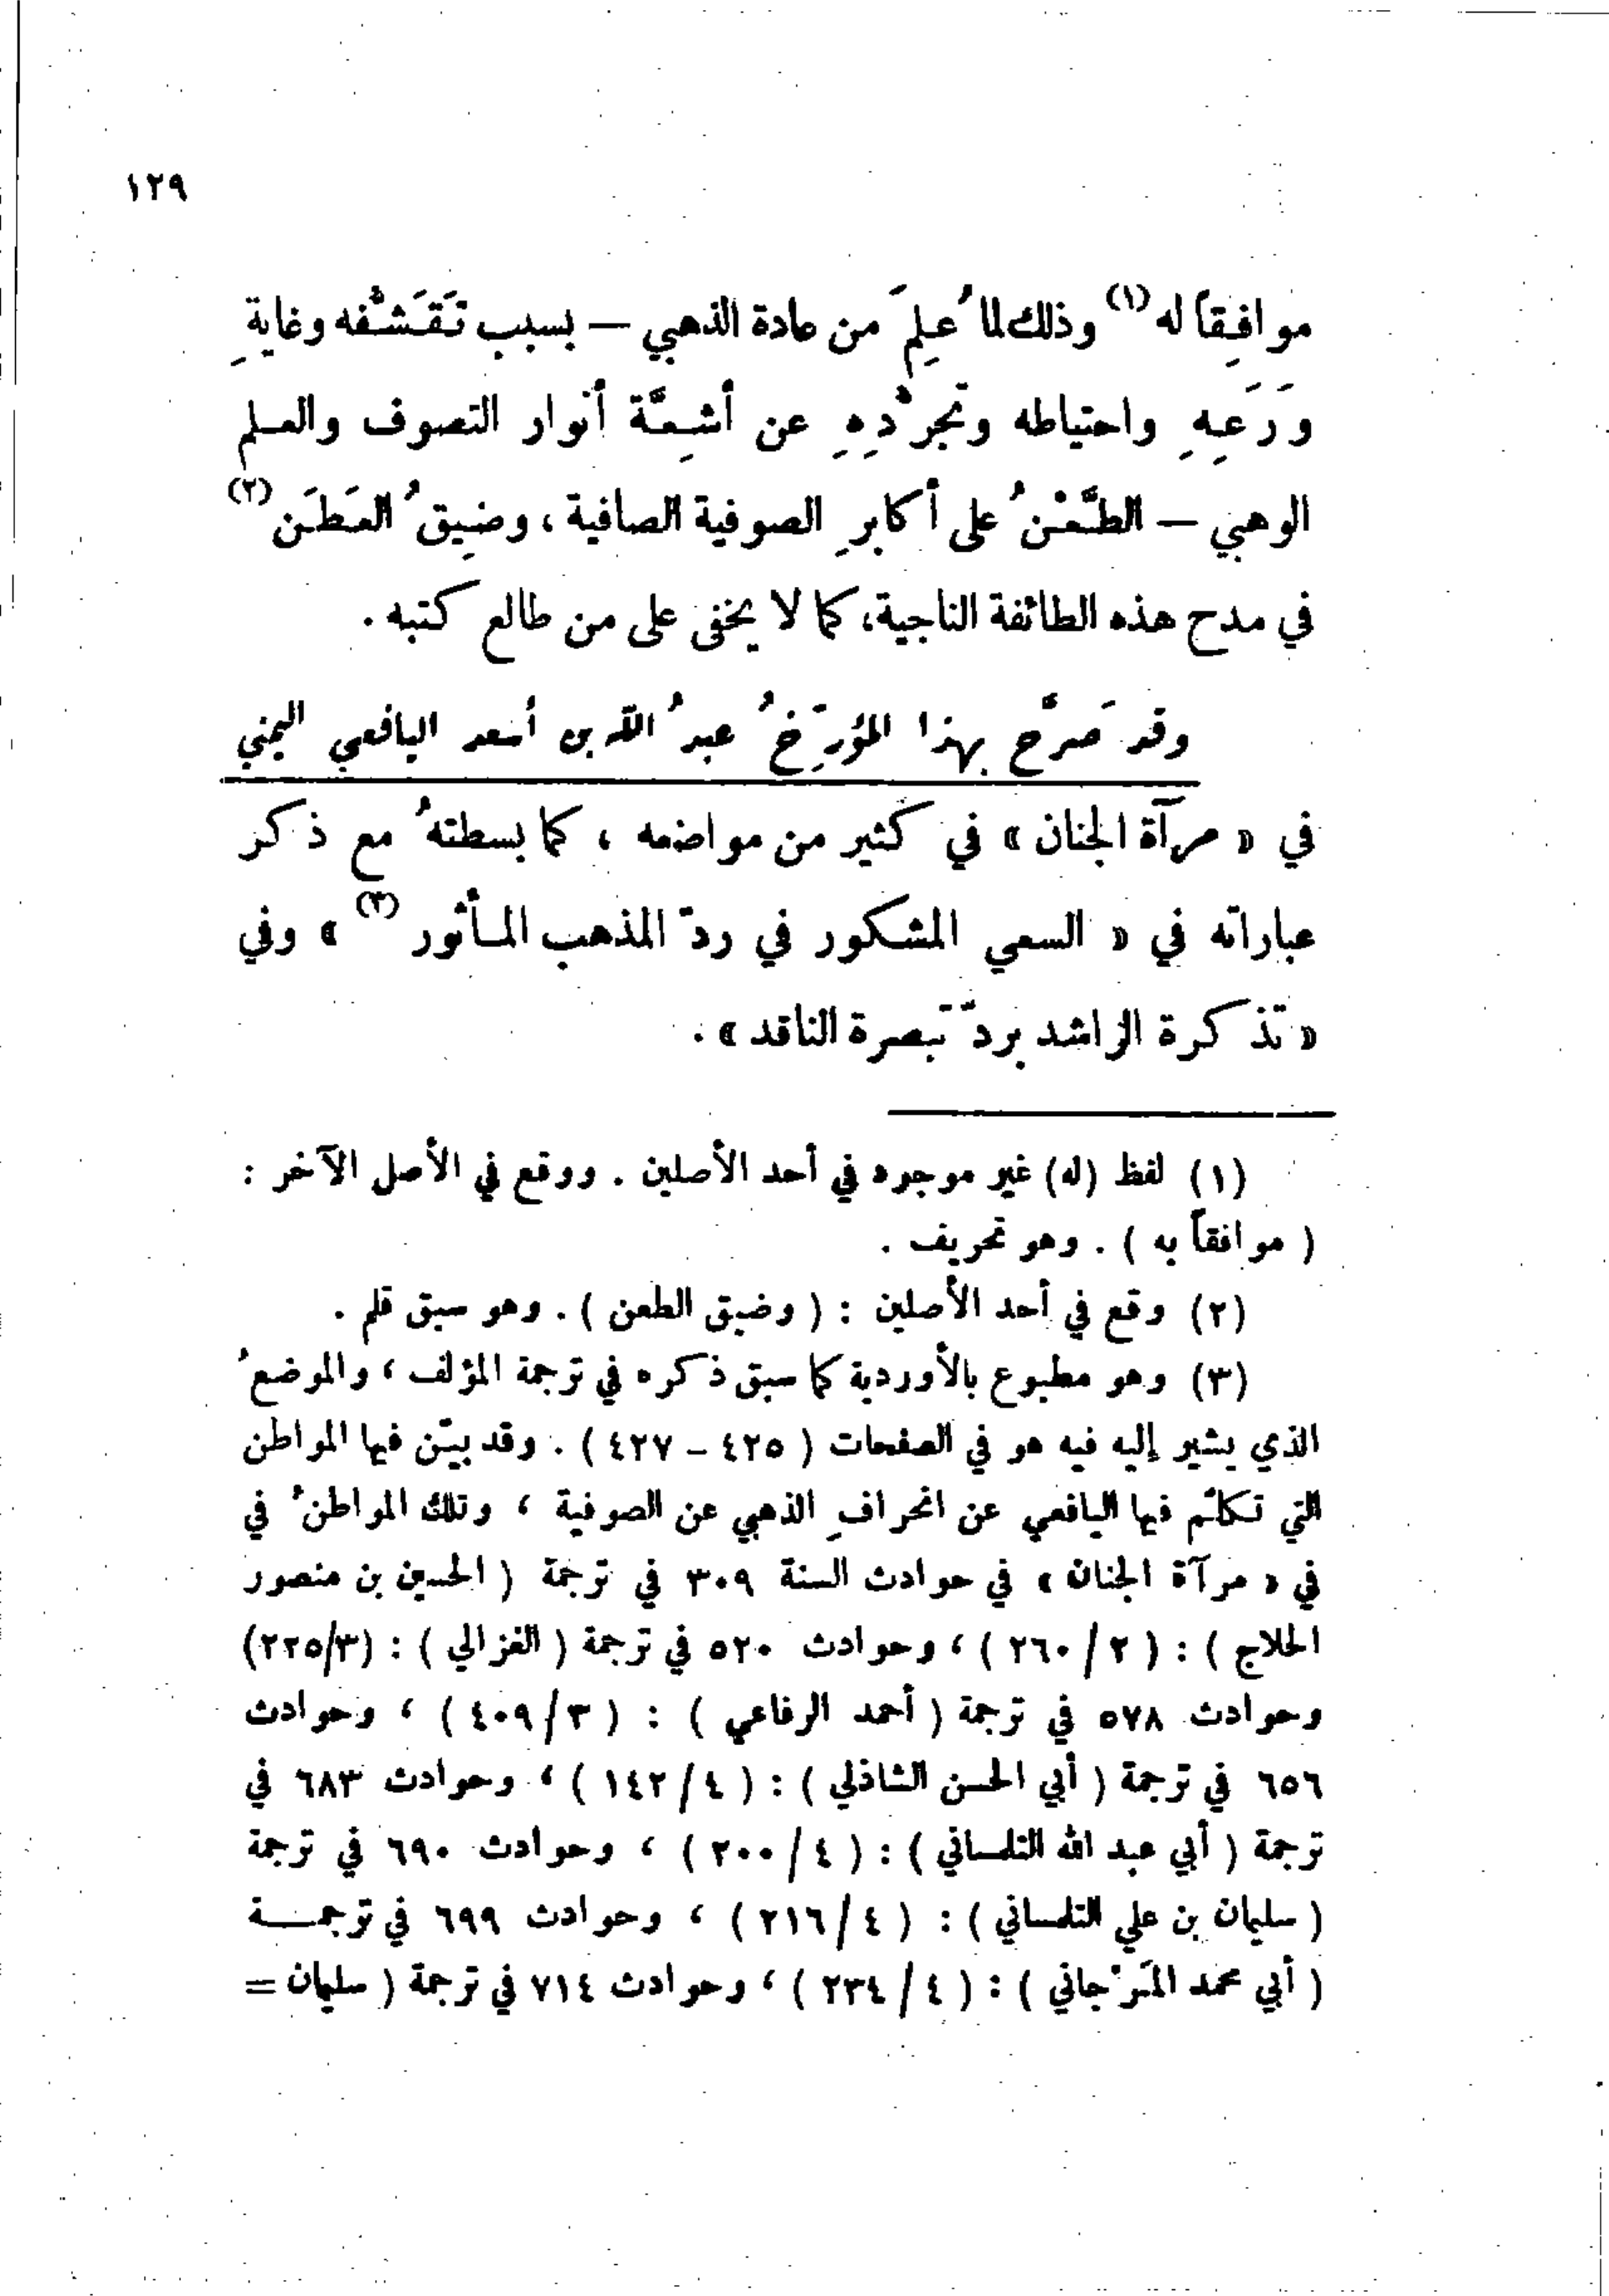 ١٢٩
موافِقاً له (١) وذلك لما عُلِمَ من عادة الذهبي — بسبب تَقَشُّفه وغايةِ
وَرَعِهِ واحتياطه وتجرُّدِهِ عن أشِعَّة أنوار التصوف والعلم
الوهبي — الطَّعْنُ على أكابرِ الصوفية الصافية ، وضِيقُ العَطَن (٢)
في مدح هذه الطائفة الناجية، كما لا يخفى على من طالع كتبه .
وقد صَرَّح بهذا المؤرِّخُ عبدُ الله بن أسعد اليافعي اليمني
في « مرآة الجنان » في كثير من مواضعه ، كما بسطتهُ مع ذكر
عباراته في « السعي المشكور في ردّ المذهب المأثور (٣) » وفي
« تذكرة الراشد بردّ تبصرة الناقد » .
(١) لفظ (له) غير موجود في أحد الأصلين . ووقع في الأصل الآخر :
( موافقاً به ) . وهو تحريف .
(٢) وقع في أحد الأصلين : ( وضيق الطعن ) . وهو سبق قلم .
(٣) وهو مطبوع بالأوردية كما سبق ذكره في ترجمة المؤلف ، والموضعُ
الذي يشير إليه فيه هو في الصفحات ( ٤٢٥ – ٤٢٧ ) . وقد بيّن فيها المواطن
التي تكلّم فيها اليافعي عن انحرافِ الذهبي عن الصوفية ، وتلك المواطنُ في
في « مرآة الجنان » في حوادث السنة ٣٠٩ في ترجمة ( الحسين بن منصور
الحلاج ) : ( ٢ / ٢٦٠ ) ، وحوادث ٥٢٠ في ترجمة ( الغزالي ) : (٣/‏٢٢٥)
وحوادث ٥٧٨ في ترجمة ( أحمد الرفاعي ) : ( ٣ / ٤٠٩ ) ، وحوادث
٦٥٦ في ترجمة ( أبي الحسن الشاذلي ) : ( ٤ / ١٤٢ ) ، وحوادث ٦٨٣ في
ترجمة ( أبي عبد الله التلمساني ) : ( ٤ / ٢٠٠ ) ، وحوادث ٦٩٠ في ترجمة
( سليمان بن علي التلمساني ) : ( ٤ / ٢١٦ ) ، وحوادث ٦٩٩ في ترجمـــة
( أبي محمد المَرْجاني ) : ( ٤ / ٢٣٤ ) ، وحوادث ٧١٤ في ترجمة ( سليمان =